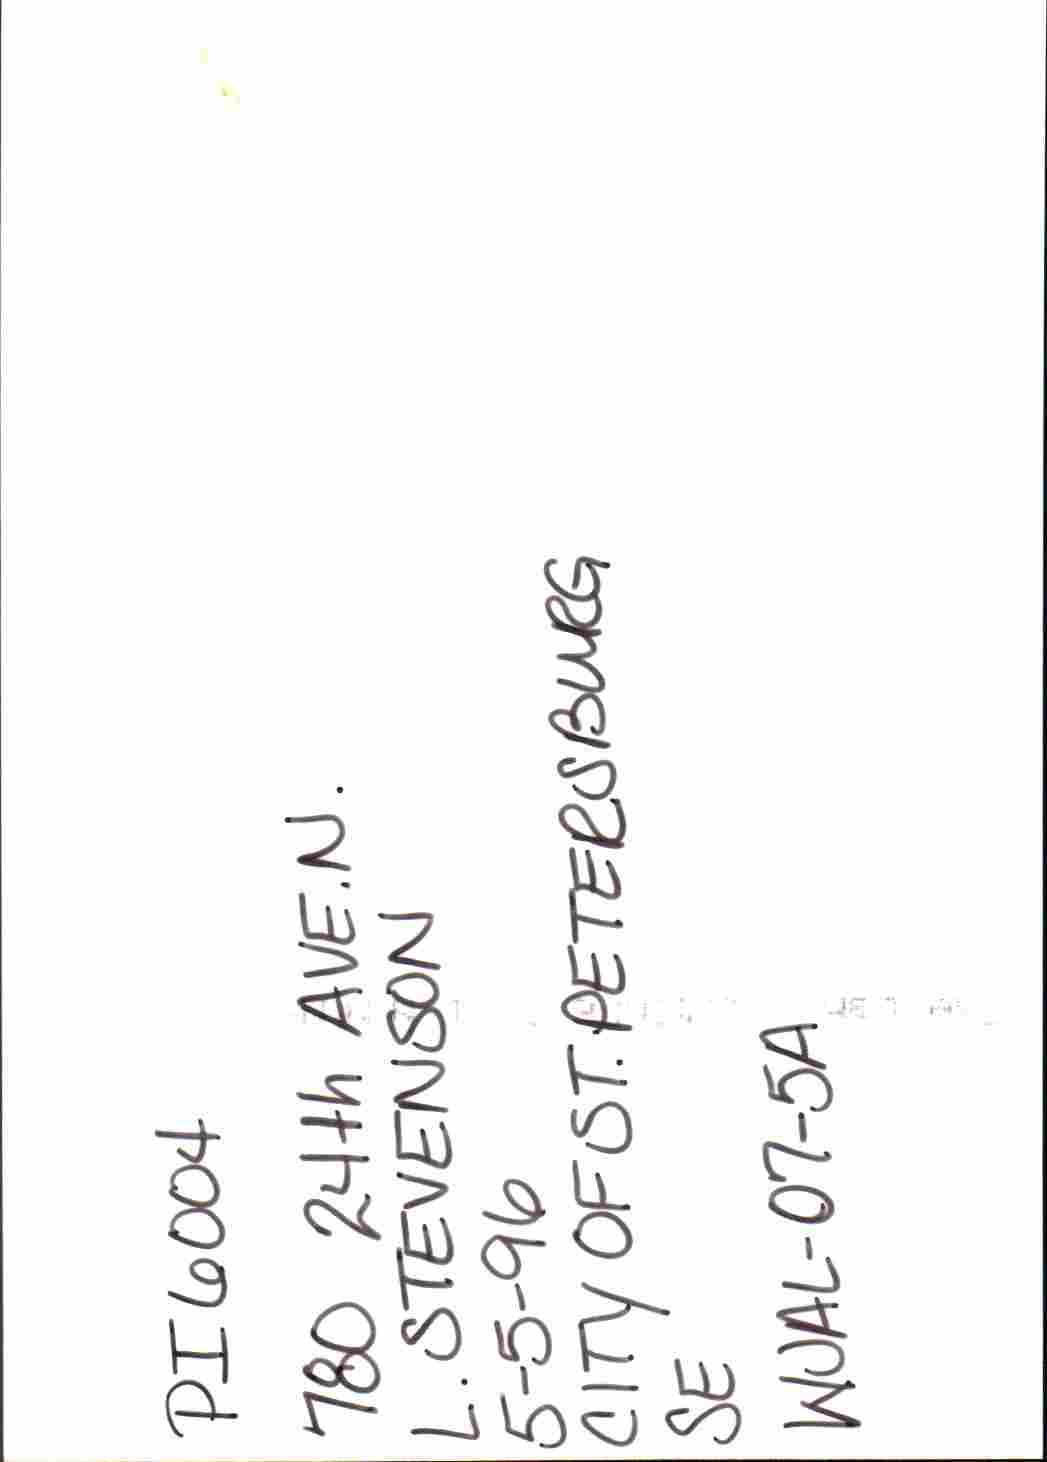 PI6004
780 24th AVE.N.
L. STEVENSON
5-5-96
CITY OF ST. PETERSBURG
SE
WUAL-07-5A